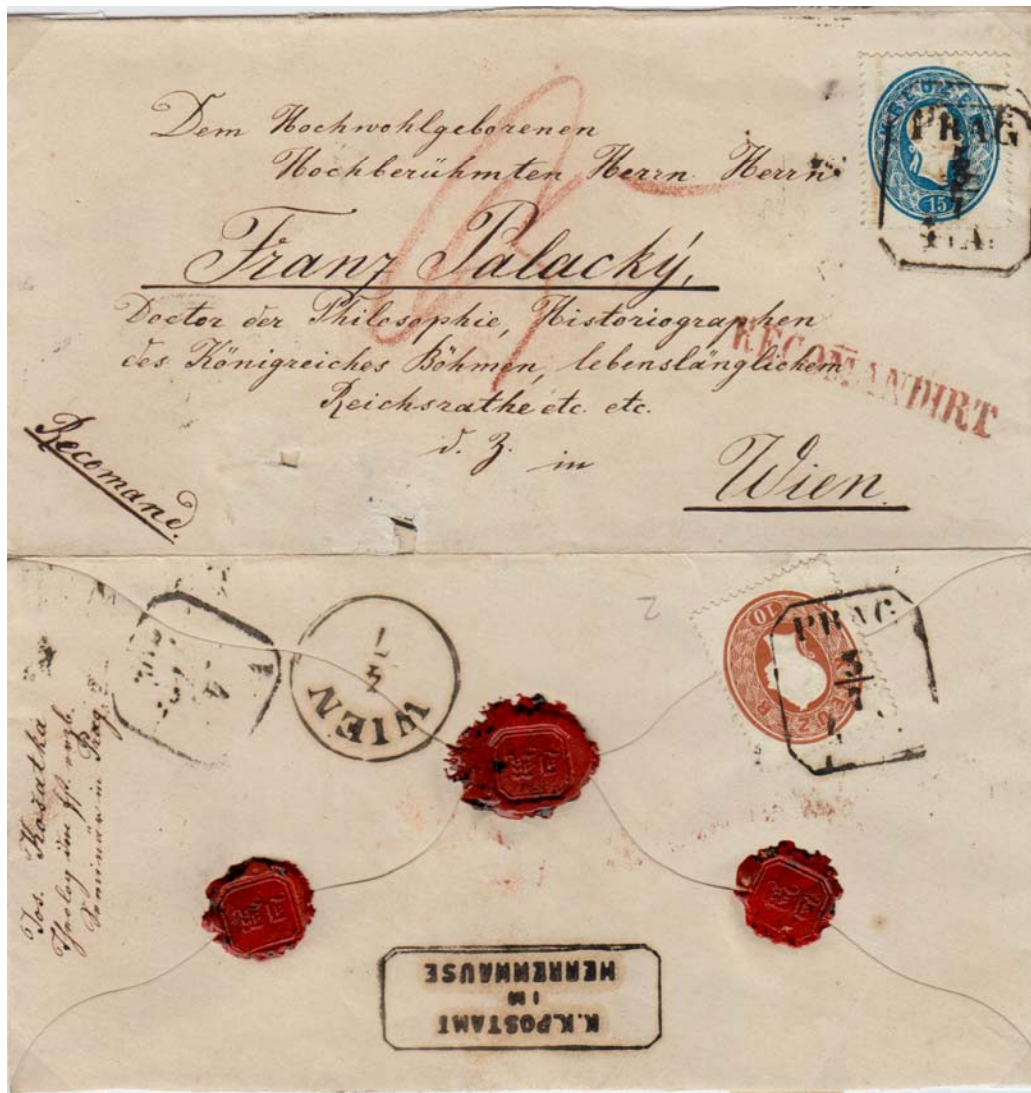 Dem Hochwohlgeborenen
Hochberühmten Herrn Herrn
Franz Palacký,
Doctor der Philosophie, Historiographen
des Königreiches Böhmen, lebenslänglichem
Reichsrathe etc. etc.
d. Z. in
Wien.
Recomand.
KREUZER
15
PRAG
RECOMANDIRT
Jos. Košatka
Theolog im fst. erzb.
Seminär in Prag
WIEN
10
PRAG
K.K.POSTAMT
IM
HERRENHAUSE